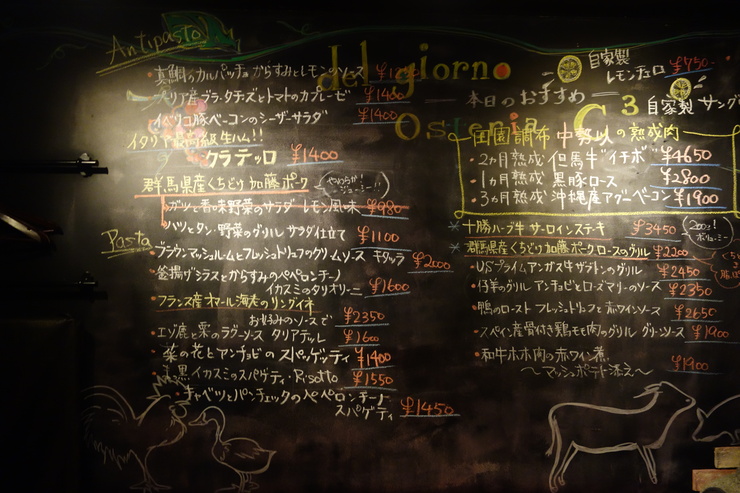 Antipasto
・真鯛のカルパッチョ からすみとレモンソース
・イタリア産ブラータチーズとトマトのカプレーゼ ¥1480
・イベリコ豚ベーコンのシーザーサラダ ¥1400
イタリア最高級生ハム!!
クラテッロ ¥1400
群馬県産くちどけ加藤ポーク
やわらか!! ジューシー!!
・ガツと香味野菜のサラダ レモン風味 ¥980
・ハツとタン・野菜のグリル サラダ仕立て ¥1100
Pasta
・ブラウンマッシュルームとフレッシュトリュフのクリームソース キタッラ ¥2000
・釜揚げシラスとからすみのペペロンチーノ
イカスミのタリオリーニ ¥1600
・フランス産オマール海老のリングイネ
お好みのソースで ¥2350
・エゾ鹿と栗のラグーソース タリアテッレ ¥1600
・菜の花とアンチョビのスパゲッティ ¥1400
・黒イカスミのスパゲティ・Risotto ¥1550
・キャベツとパンチェッタのペペロンチーノ
スパゲティ ¥1450
del giorno
本日のおすすめ
Osteria
自家製
レモンチェロ ¥750-
C3
自家製 サング
田園調布 中勢以の熟成肉
・2ヵ月熟成 但馬牛"イチボ" ¥4650
・1ヵ月熟成 黒豚ロース ¥2800
・3ヵ月熟成 沖縄産アグーベーコン ¥1900
*十勝ハーブ牛 サーロインステーキ ¥3450
200g! ボリューミー
*群馬県産くちどけ加藤ポークロースのグリル ¥2200
・USプライムアンガス牛ザブトンのグリル ¥2450
・仔羊のグリル アンチョビとローズマリーのソース ¥2350
・鴨のロースト フレッシュトリュフと赤ワインソース ¥2650
・スペイン産骨付き鶏モモ肉のグリル グリーンソース ¥1900
・和牛ホホ肉の赤ワイン煮
〜マッシュポテト添え〜 ¥1900